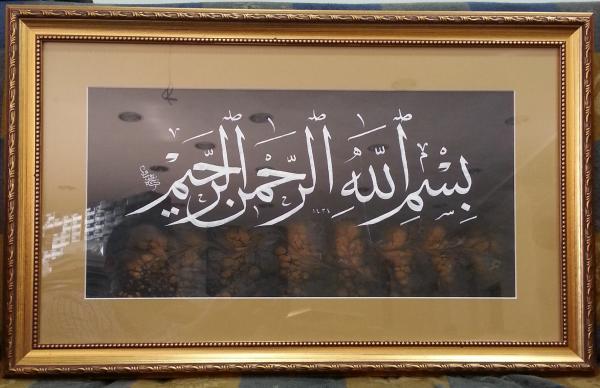 بِسْمِ اللَّهِ الرَّحْمَنِ الرَّحِيمِ
١٤٣٤